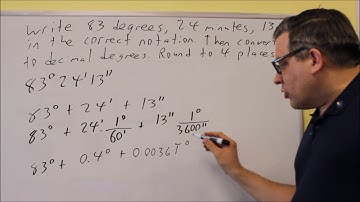 Write 83 degrees, 24 minutes, 13
in the correct notation. Then convert
to decimal degrees. Round to 4 places
83° 24' 13"
83° + 24' + 13"
83° + 24' · 1°/60' + 13" 1°/3600"
83° + 0.4° + 0.0036T°